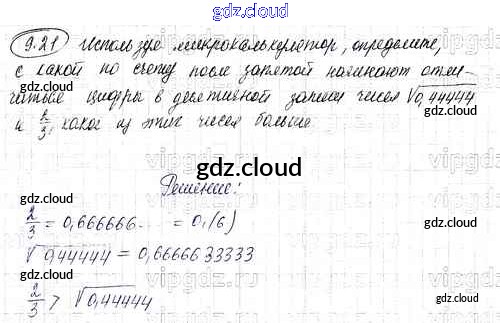 gdz.cloud
9.21 Используя микрокалькулятор, определите,
с какой по счету после запятой начинают отли-
чаться цифры в десятичной записи чисел √0,44444
и 2/3, какое из этих чисел больше.
gdz.cloud
Решение:
2/3 = 0,666666... = 0,(6)
√0,44444 = 0,6666633333
2/3 > √0,44444
gdz.cloud